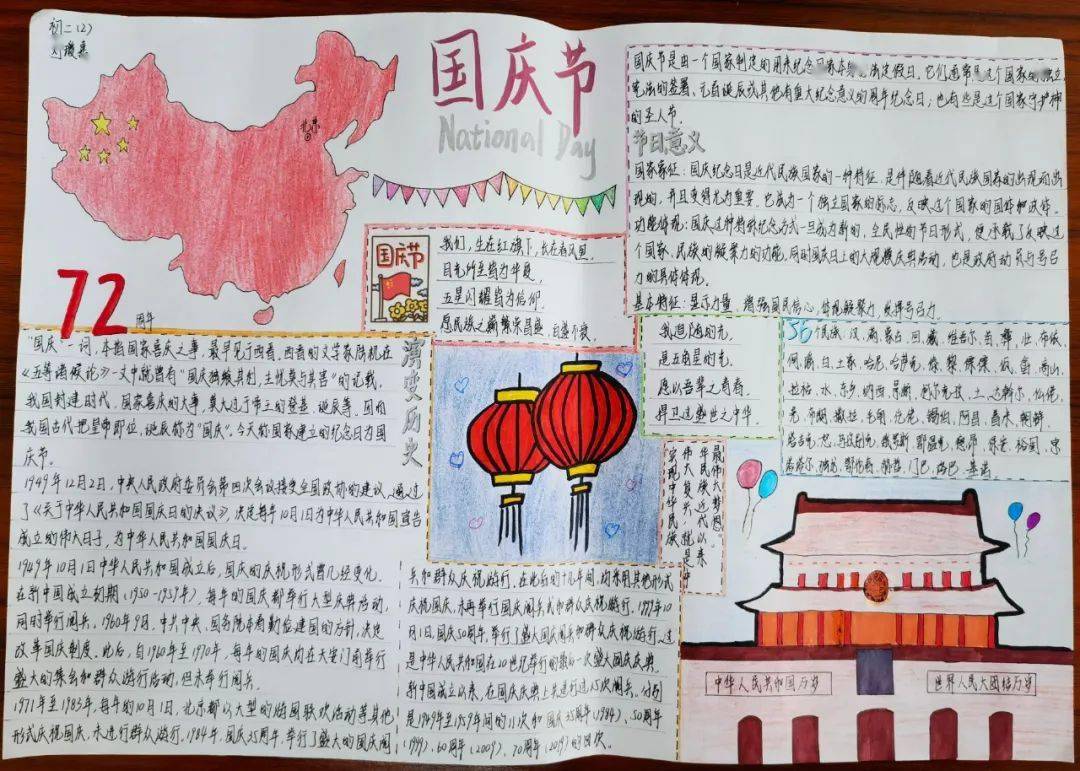 初二(2)
北京
72
周年
国庆节
National Day
国庆节是由一个国家制定的用来纪念国家本身的法定假日。它们通常是这个国家的独立、
宪法的签署、元首诞辰或其他有重大纪念意义的周年纪念日；也有些是这个国家守护神
的圣人节。
节日意义
国家象征：国庆纪念日是近代民族国家的一种特征，是伴随着近代民族国家的出现而出
现的，并且变得尤为重要。它成为一个独立国家的标志，反映这个国家的国体和政体。
功能体现：国庆这种特殊纪念方式一旦成为新的、全民性的节日形式，便承载了反映这
个国家、民族的凝聚力的功能。同时国庆日上的大规模庆典活动，也是政府动员与号召
力的具体体现。
基本特征：显示力量、增强国民信心，体现凝聚力，发挥号召力。
国庆节
我们，生在红旗下，长在春风里，
目光所至皆为华夏，
五星闪耀皆为信仰。
愿民族之
繁荣昌盛
我追随的光，
是五角星的光。
愿以吾辈之青春，
捍卫这盛世之中华
56个民族：汉、满、蒙古、回、藏、维吾尔、苗、彝、壮、布依、
侗、瑶、白、土家、哈尼、哈萨克、傣、黎、傈僳、佤、畲、高山、
拉祜、水、东乡、纳西、景颇、柯尔克孜、土、达斡尔、仫佬、
羌、布朗、撒拉、毛南、仡佬、锡伯、阿昌、普米、朝鲜、
塔吉克、怒、乌孜别克、俄罗斯、鄂温克、德昂、保安、裕固、京、
塔塔尔、独龙、鄂伦春、赫哲、门巴、珞巴、基诺
演变历史
“国庆”一词，本指国家喜庆之事，最早见于西晋。西晋的文学家陆机在
《五等诸侯论》一文中就曾有“国庆独飨其利，主忧莫与其害”的记载，
我国封建时代、国家喜庆的大事，莫大过于帝王的登基、诞辰等。因而
我国古代把皇帝即位、诞辰称为“国庆”。今天称国家建立的纪念日为国
庆节。
1949年12月2日，中央人民政府委员会第四次会议接受全国政协的建议，通过
了《关于中华人民共和国国庆日的决议》，决定每年10月1日为中华人民共和国宣告
成立的伟大日子，为中华人民共和国国庆日。
1949年10月1日中华人民共和国成立后，国庆的庆祝形式曾几经变化。
在新中国成立初期（1950-1959年），每年的国庆都举行大型庆典活动，
同时举行阅兵。1960年9月，中共中央、国务院本着勤俭建国的方针，决定
改革国庆制度。此后，自1960年至1970年，每年的国庆均在天安门前举行
盛大的集会和群众游行活动，但未举行阅兵。
1971年至1983年，每年的10月1日，北京都以大型的游园联欢活动等其他
形式庆祝国庆，未进行群众游行。1984年，国庆35周年，举行了盛大的国庆阅
兵和群众庆祝游行。在此后的十几年间，均采用其他形式
庆祝国庆，未再举行国庆阅兵式和群众庆祝游行。1999年10
月1日，国庆50周年，举行了盛大国庆阅兵和群众庆祝游行。这
是中华人民共和国在20世纪举行的最后一次盛大国庆庆典。
新中国成立以来，在国庆庆典上共进行过15次阅兵。分别
是1949年至1959年间的11次和国庆35周年（1984）、50周年
（1999）、60周年（2009）、70周年（2019）的四次。
实现中华民族
伟大复兴，就是中
华民族近代以来
最伟大梦想
中华人民共和国万岁
世界人民大团结万岁